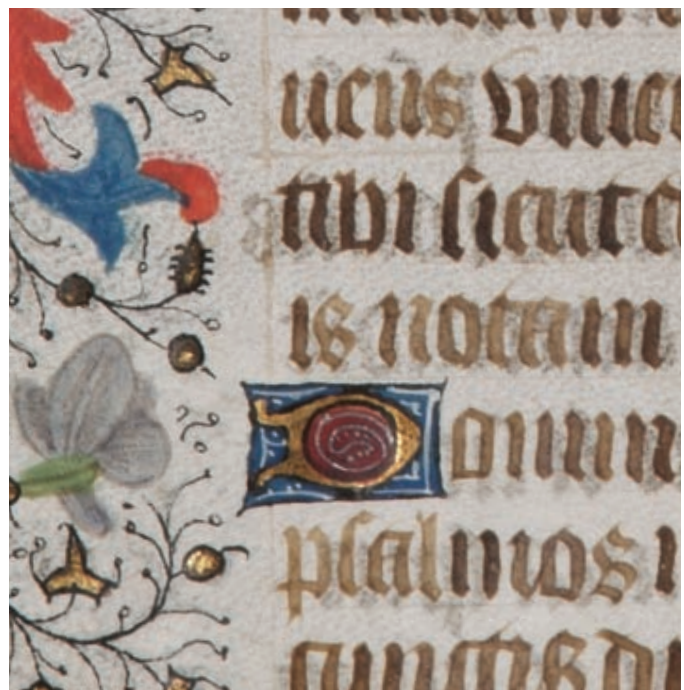 uens viuen
tibi sicut e
is notam
Domin
psalmos n
cunctis di